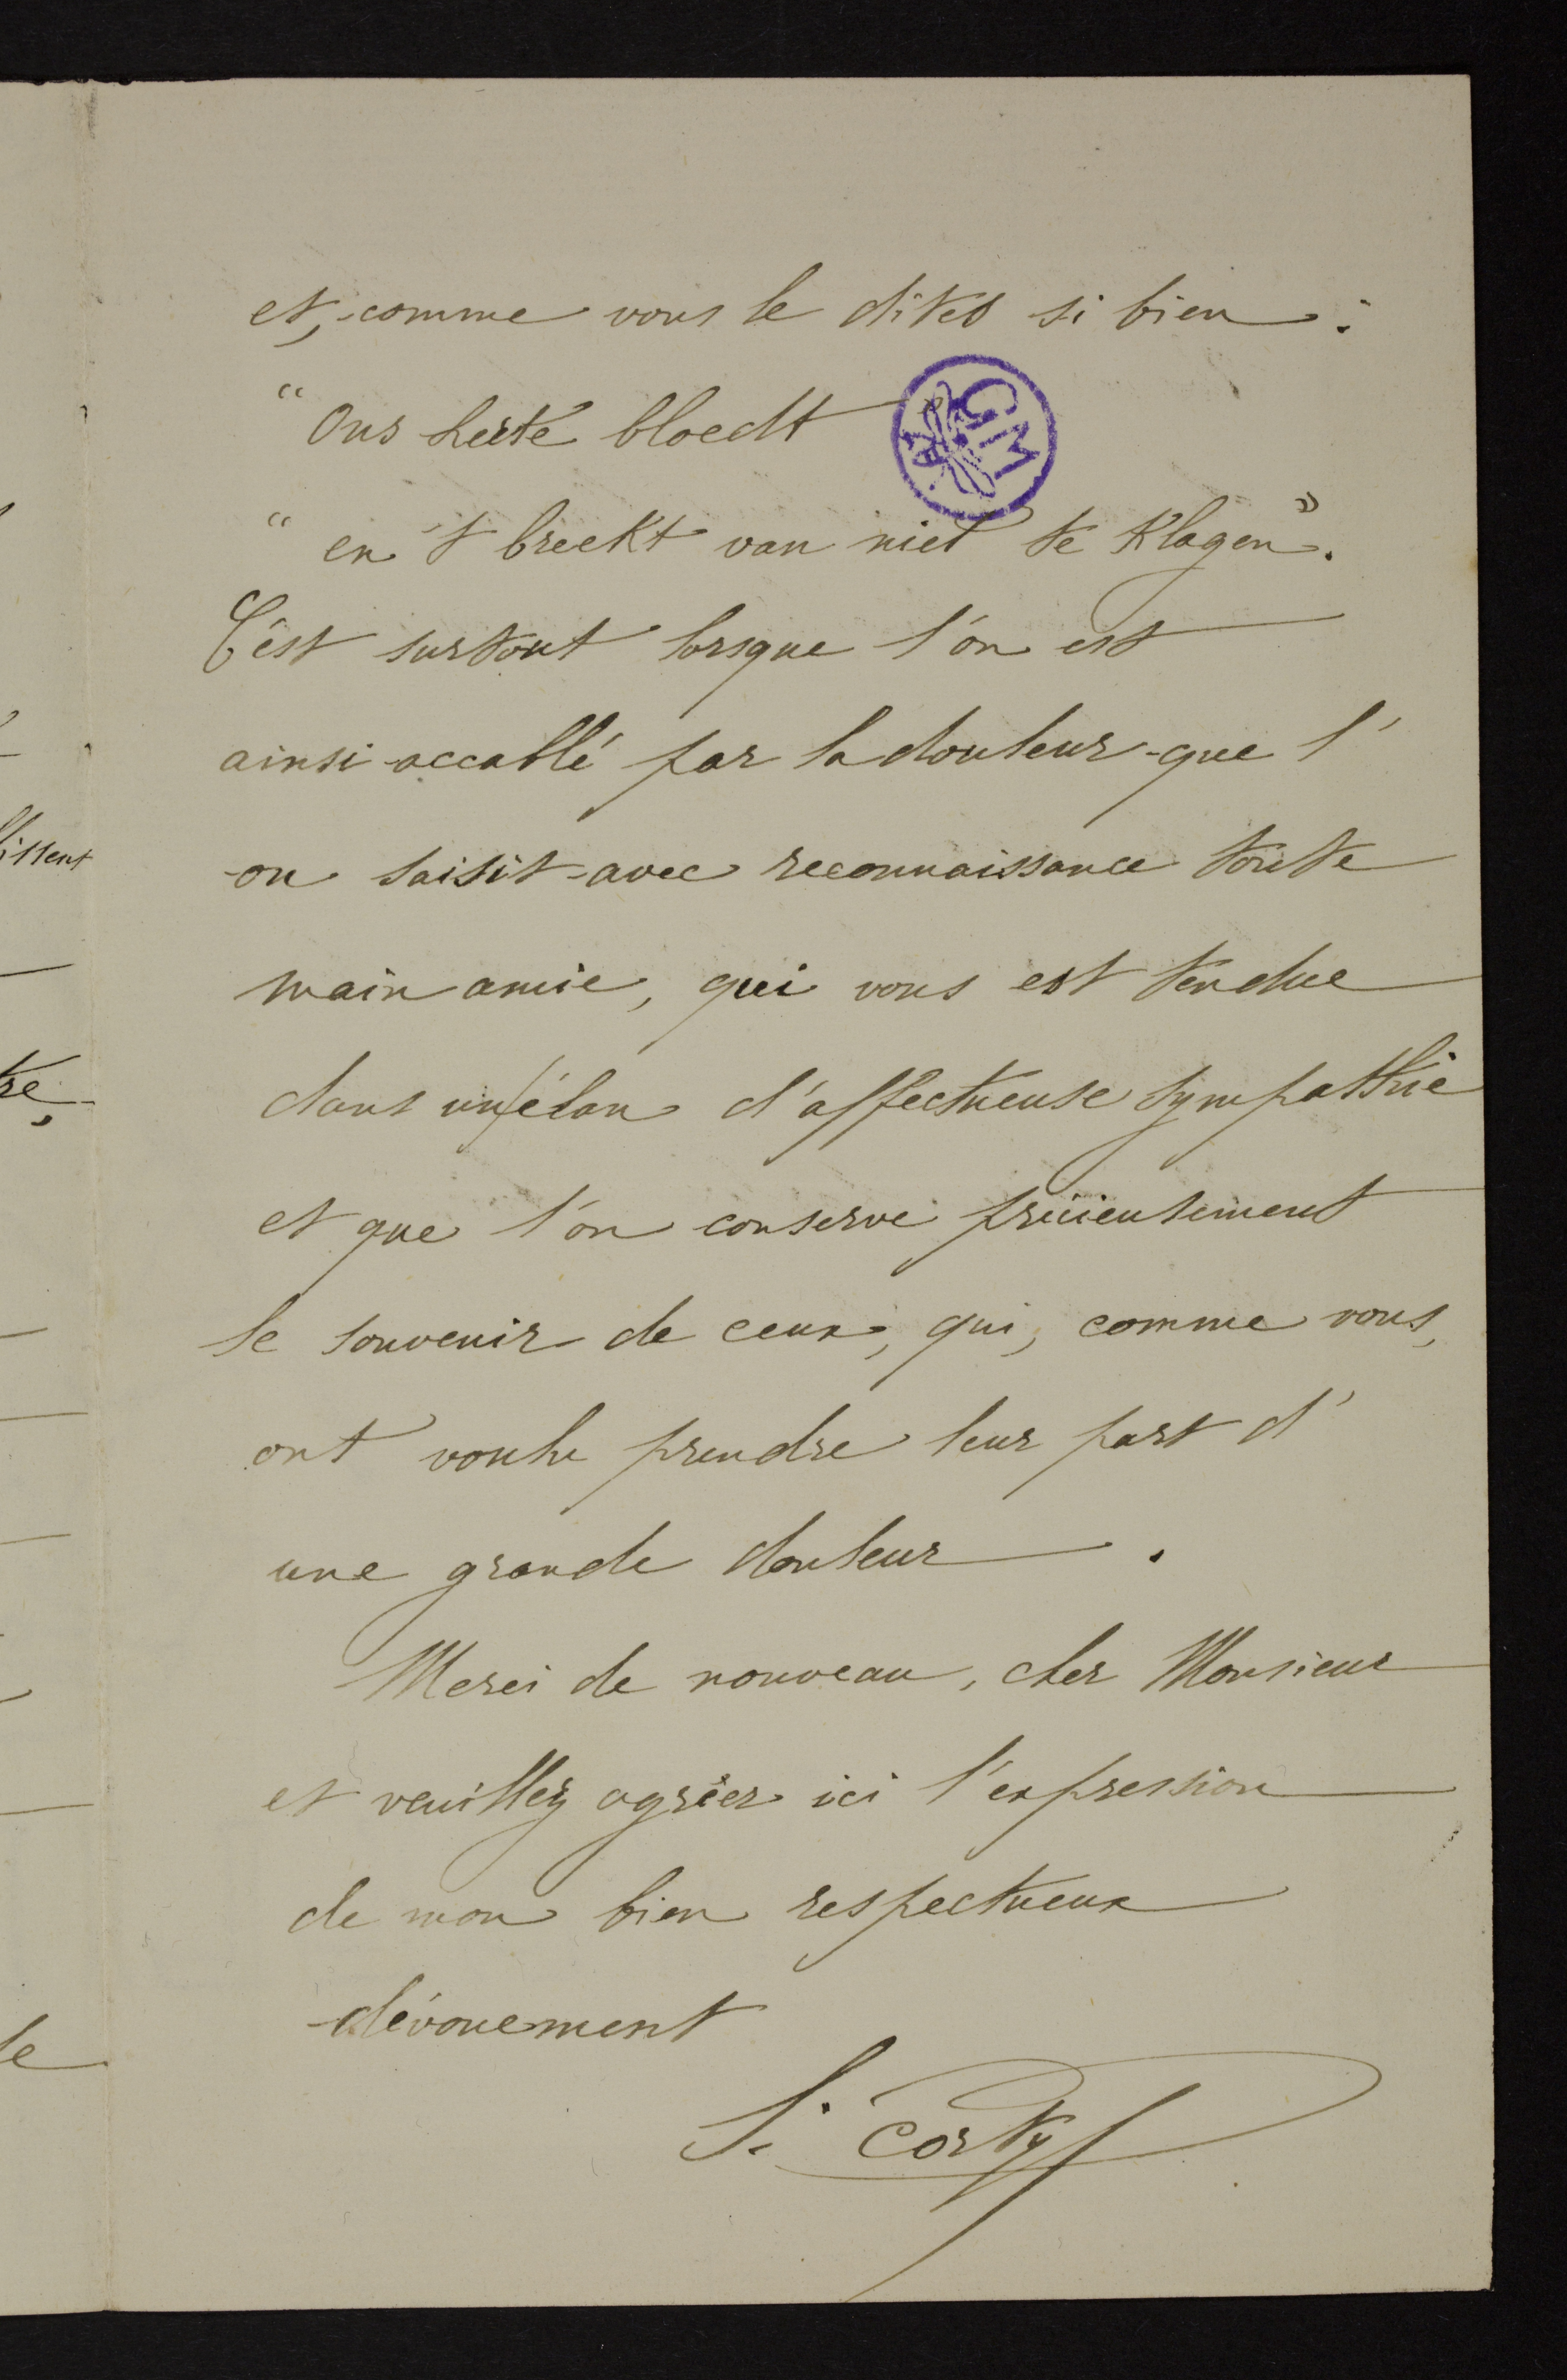 et, comme vous le dites si bien :
GM
“ Ons herte bloedt
“ en 't breekt van niet te klagen ”.
C'est surtout lorsque l'on est
ainsi accablé par la douleur que l'
on saisit avec reconnaissance toute
main amie, qui vous est tendue
dans un élan d'affectueuse sympathie
et que l'on conserve précieusement
le souvenir de ceux, qui, comme vous,
ont voulu prendre leur part d'
une grande douleur .
Merci de nouveau, cher Monsieur
et veuillez agréer ici l'expression
de mon bien respectueux
dévouement